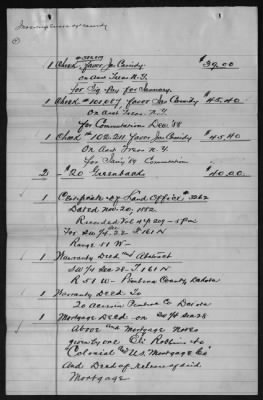 1 Check favor Jas Cassidy $39.00
on Asst Treas N.Y.
for Pay for January.
1 Check #101,087 favor Jas Cassidy $45.40
On Asst Treas N.Y.
for Commutation Dec '88
1 Check #102,211 favor Jas Cassidy $45.40
On Asst Treas N.Y.
for Jany '89 Commutation
2 - $20 Greenbacks $40.00
1 Certificate of Land Office # 3262
Dated Nov. 20, 1882
Recorded Vol
For SW/4. 22 T 161 N
Range 51 W -
1 Warranty Deed and Abstract
SW/4 Sec 28 - T 161 N
R 51 W - Pembina County, Dakota
1 Warranty Deed To
Pembina Co Dakota
1 Mortgage Deed on SW/4 Sec 28
Above and Mortgage Notes
given by one Eli Robbins to
"Colonial and U.S. Mortgage Co"
And Deed of release of said
Mortgage